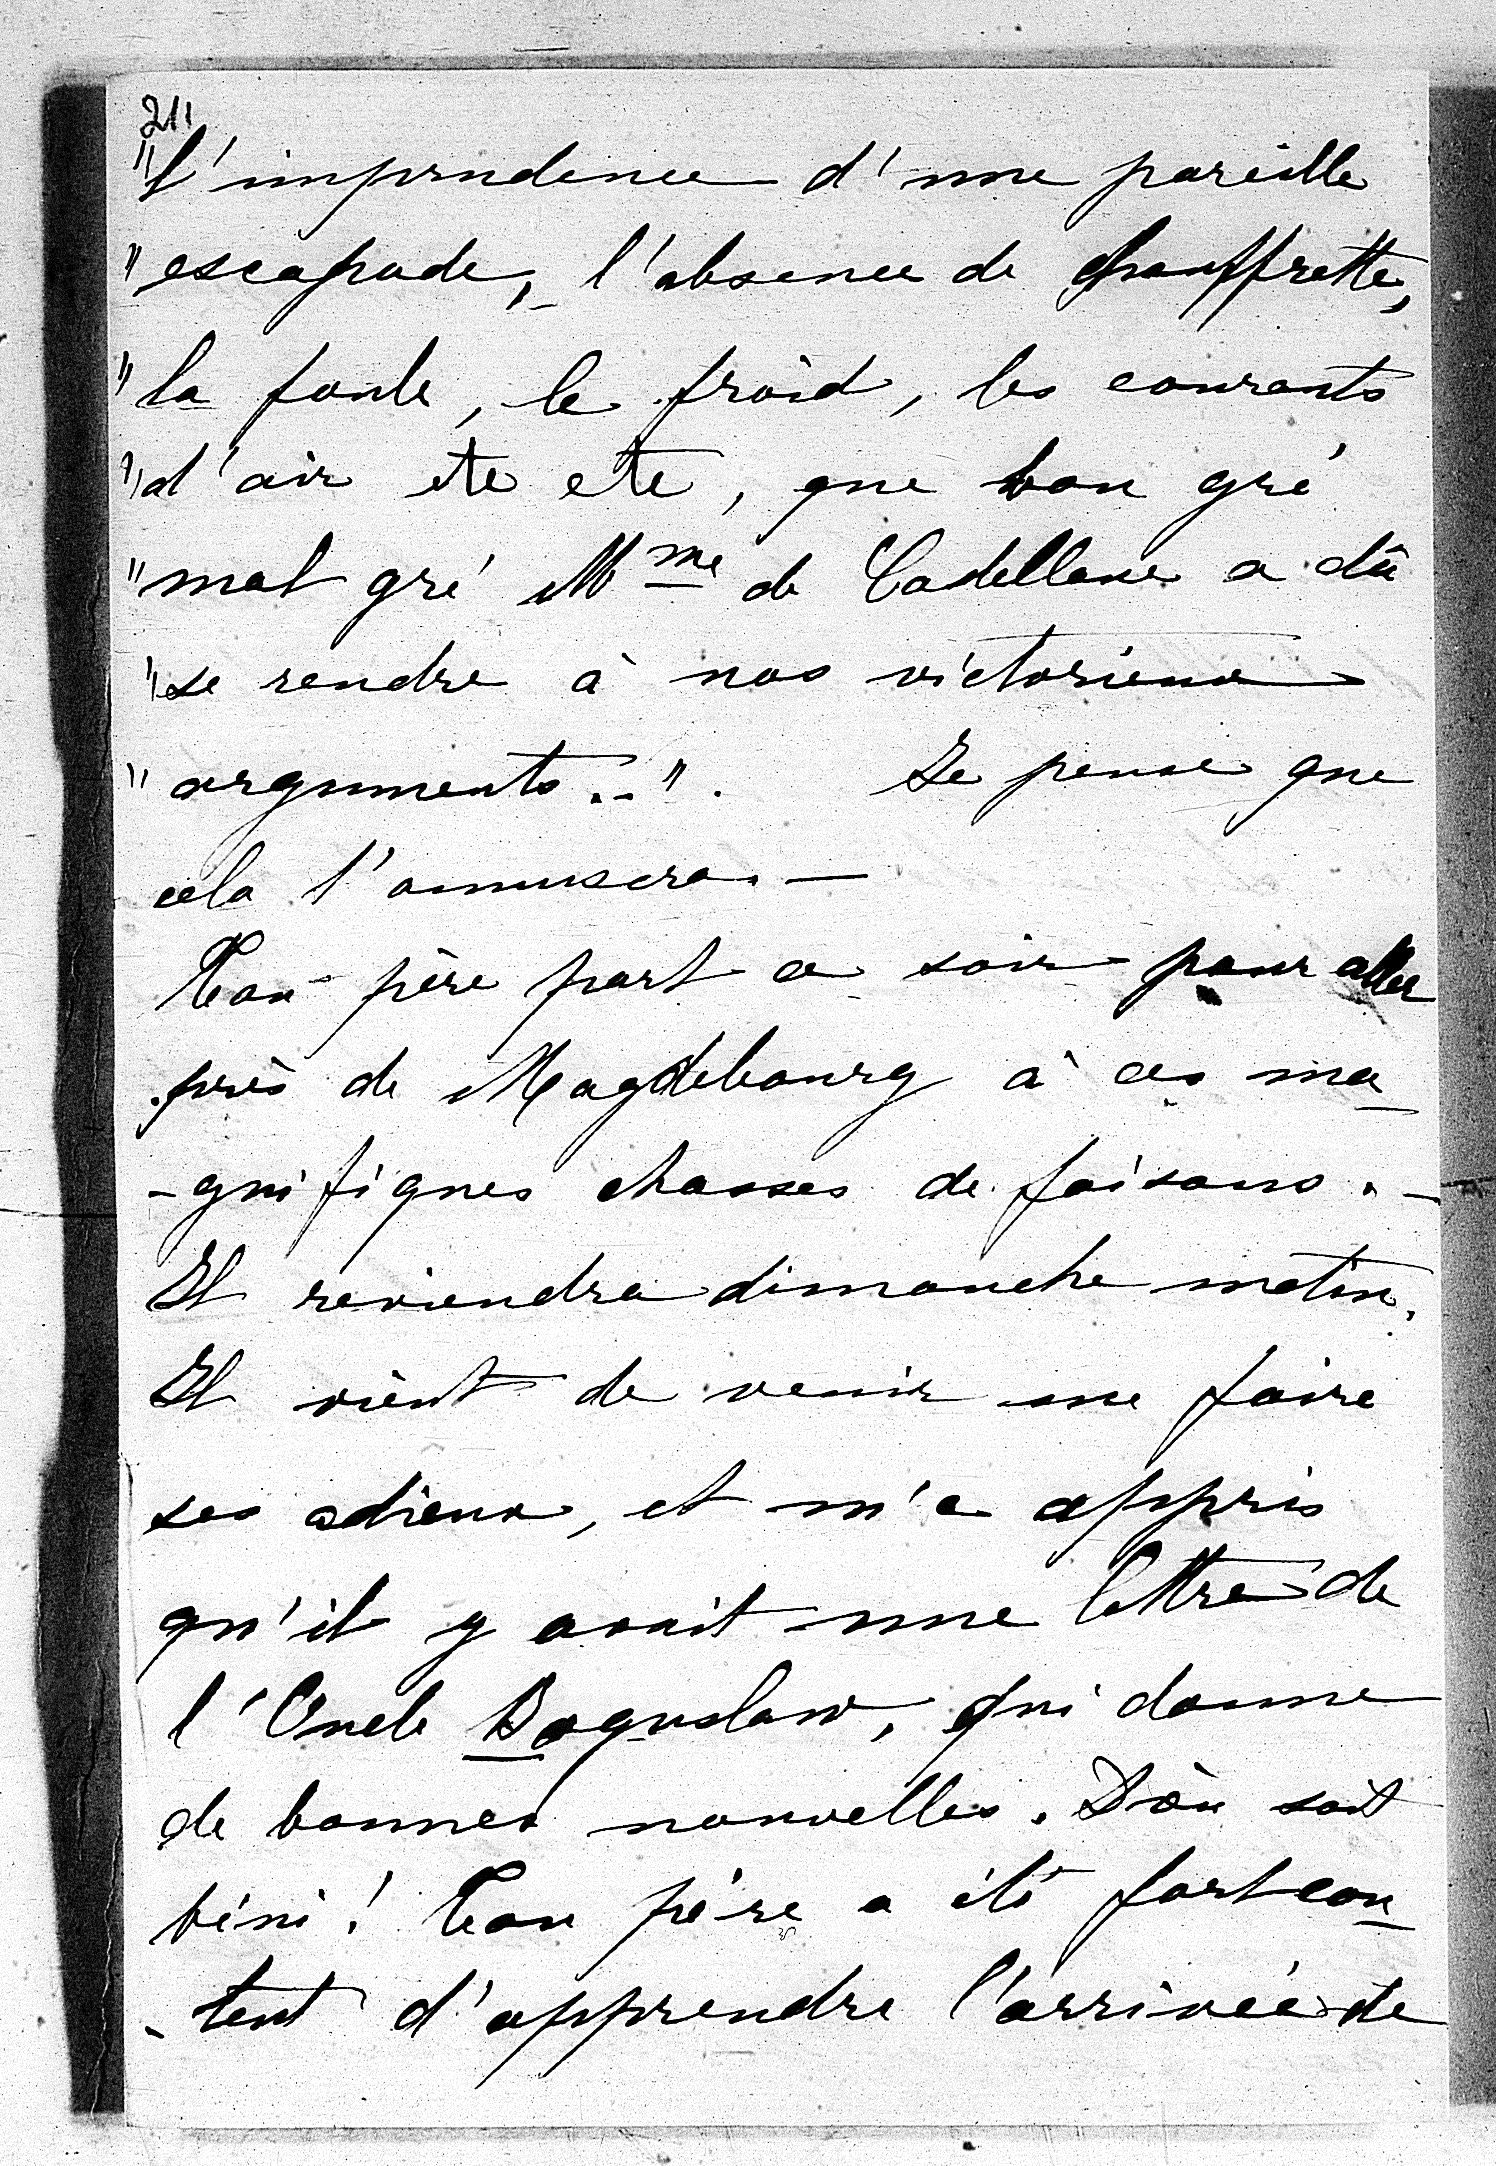 211
"l'imprudence d'une pareille
"escapade, l'absence de chauffrette,
"la foule, le froid, les courants
"d'air etc etc, que bon gré
"mal gré Mme de Castellane a dû
"se rendre à nos victorieux
"arguments..". Je pense que
cela t'amusera. —
Ton père part ce soir pour aller
près de Magdebourg à ces ma-
-gnifiques chasses de faisans. —
Il reviendra dimanche matin.
Il vient de venir me faire
ses adieux, et m'a appris
qu'il y avait une lettre de
l'Oncle Boguslaw, qui donne
de bonnes nouvelles. Dieu soit
béni! Ton père a été fort con-
-tent d'apprendre l'arrivée de